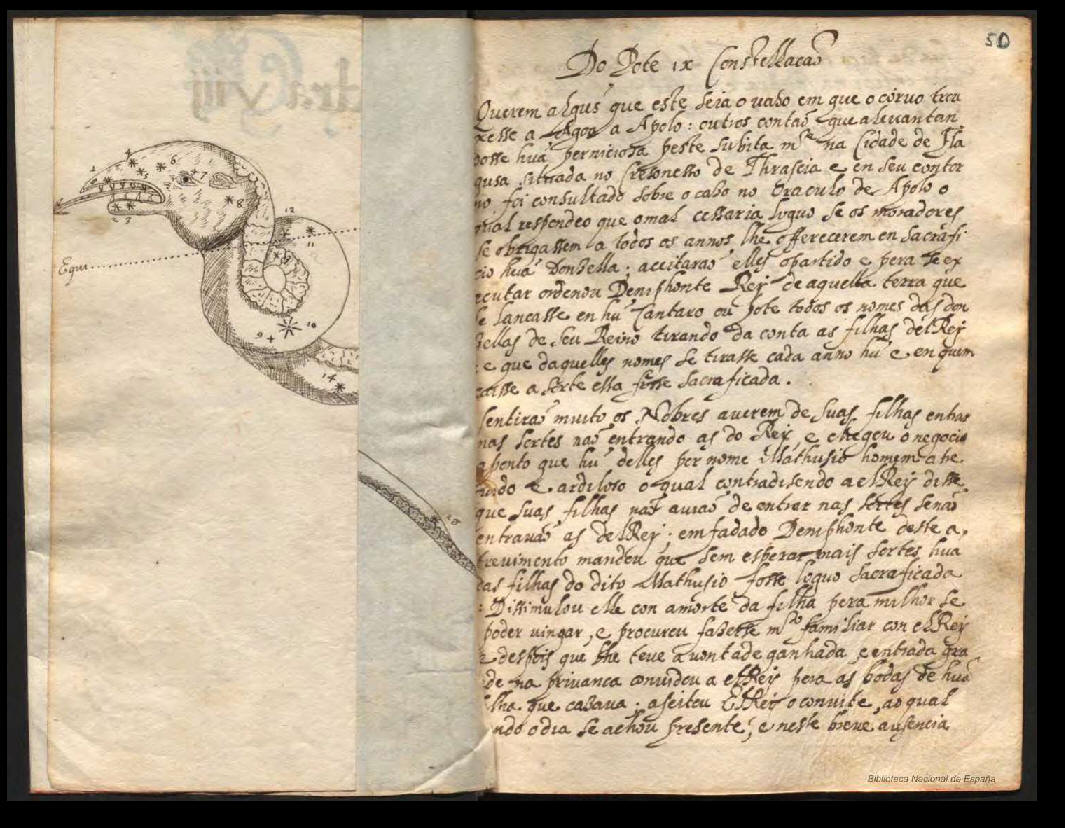 50
Do Pote ix Constellacaõ
Querem algũs que este seia o vaso em que o coruo trou
xesse a Agoa a Apolo: outros contaõ que aleuantan
dosse huã perniciosa peste subita mᵗᵉ na Cidade de Fla
gusa situada no Cresonesso de Thrascia e en seu contor
no foi consultado sobre o caso no Oraculo de Apolo o
qual respondeo que o mal cessaria loguo se os moradores
se obrigassem a todos os annos lhe offerecerem en Sacrafi
cio huã Donsella: aceitaraõ elles o partido e pera se ex
ecutar ordenou Demiphonte Rey de aquella terra que
se lancasse en hũ Cantaro ou pote todos os nomes das don
sellas de Seu Reino tirando da conta as filhas del Rey
: e que daquelles nomes se tirasse cada anno hũ e en quem
caisse a Sorte essa fosse Sacraficada.
Sentiraõ muito os Nobres auerem de Suas filhas entrar
nas Sortes naõ entrando as do Rey e chegou o negocio
a ponto que hũ delles per nome Mathusio homem atre
uido e ardiloso o qual contradisendo a el Rey disse
que Suas filhas naõ auiaõ de entrar nas Sortes senaõ
entrauaõ as del Rey: emfadado Demiphonte deste a,
treuimento mandou que Sem esperar mais Sortes hua
das filhas do dito Mathusio fosse loguo Sacraficada
: Dissimulou elle con a morte da filha pera milhor se
poder uingar, e procurou faserse mᵗᵒ familiar con el Rey
e despois que lhe teue a uontade ganhada, e entrada gra
de na priuanca conuidou a el Rey pera as bodas de huã
filha que casaua: aseitou El Rey o conuite, ao qual
ando o dia se achou presente; e neste breue ausencia
Equi
4
6
7
8
12
11
9
10
14
Biblioteca Nacional de España